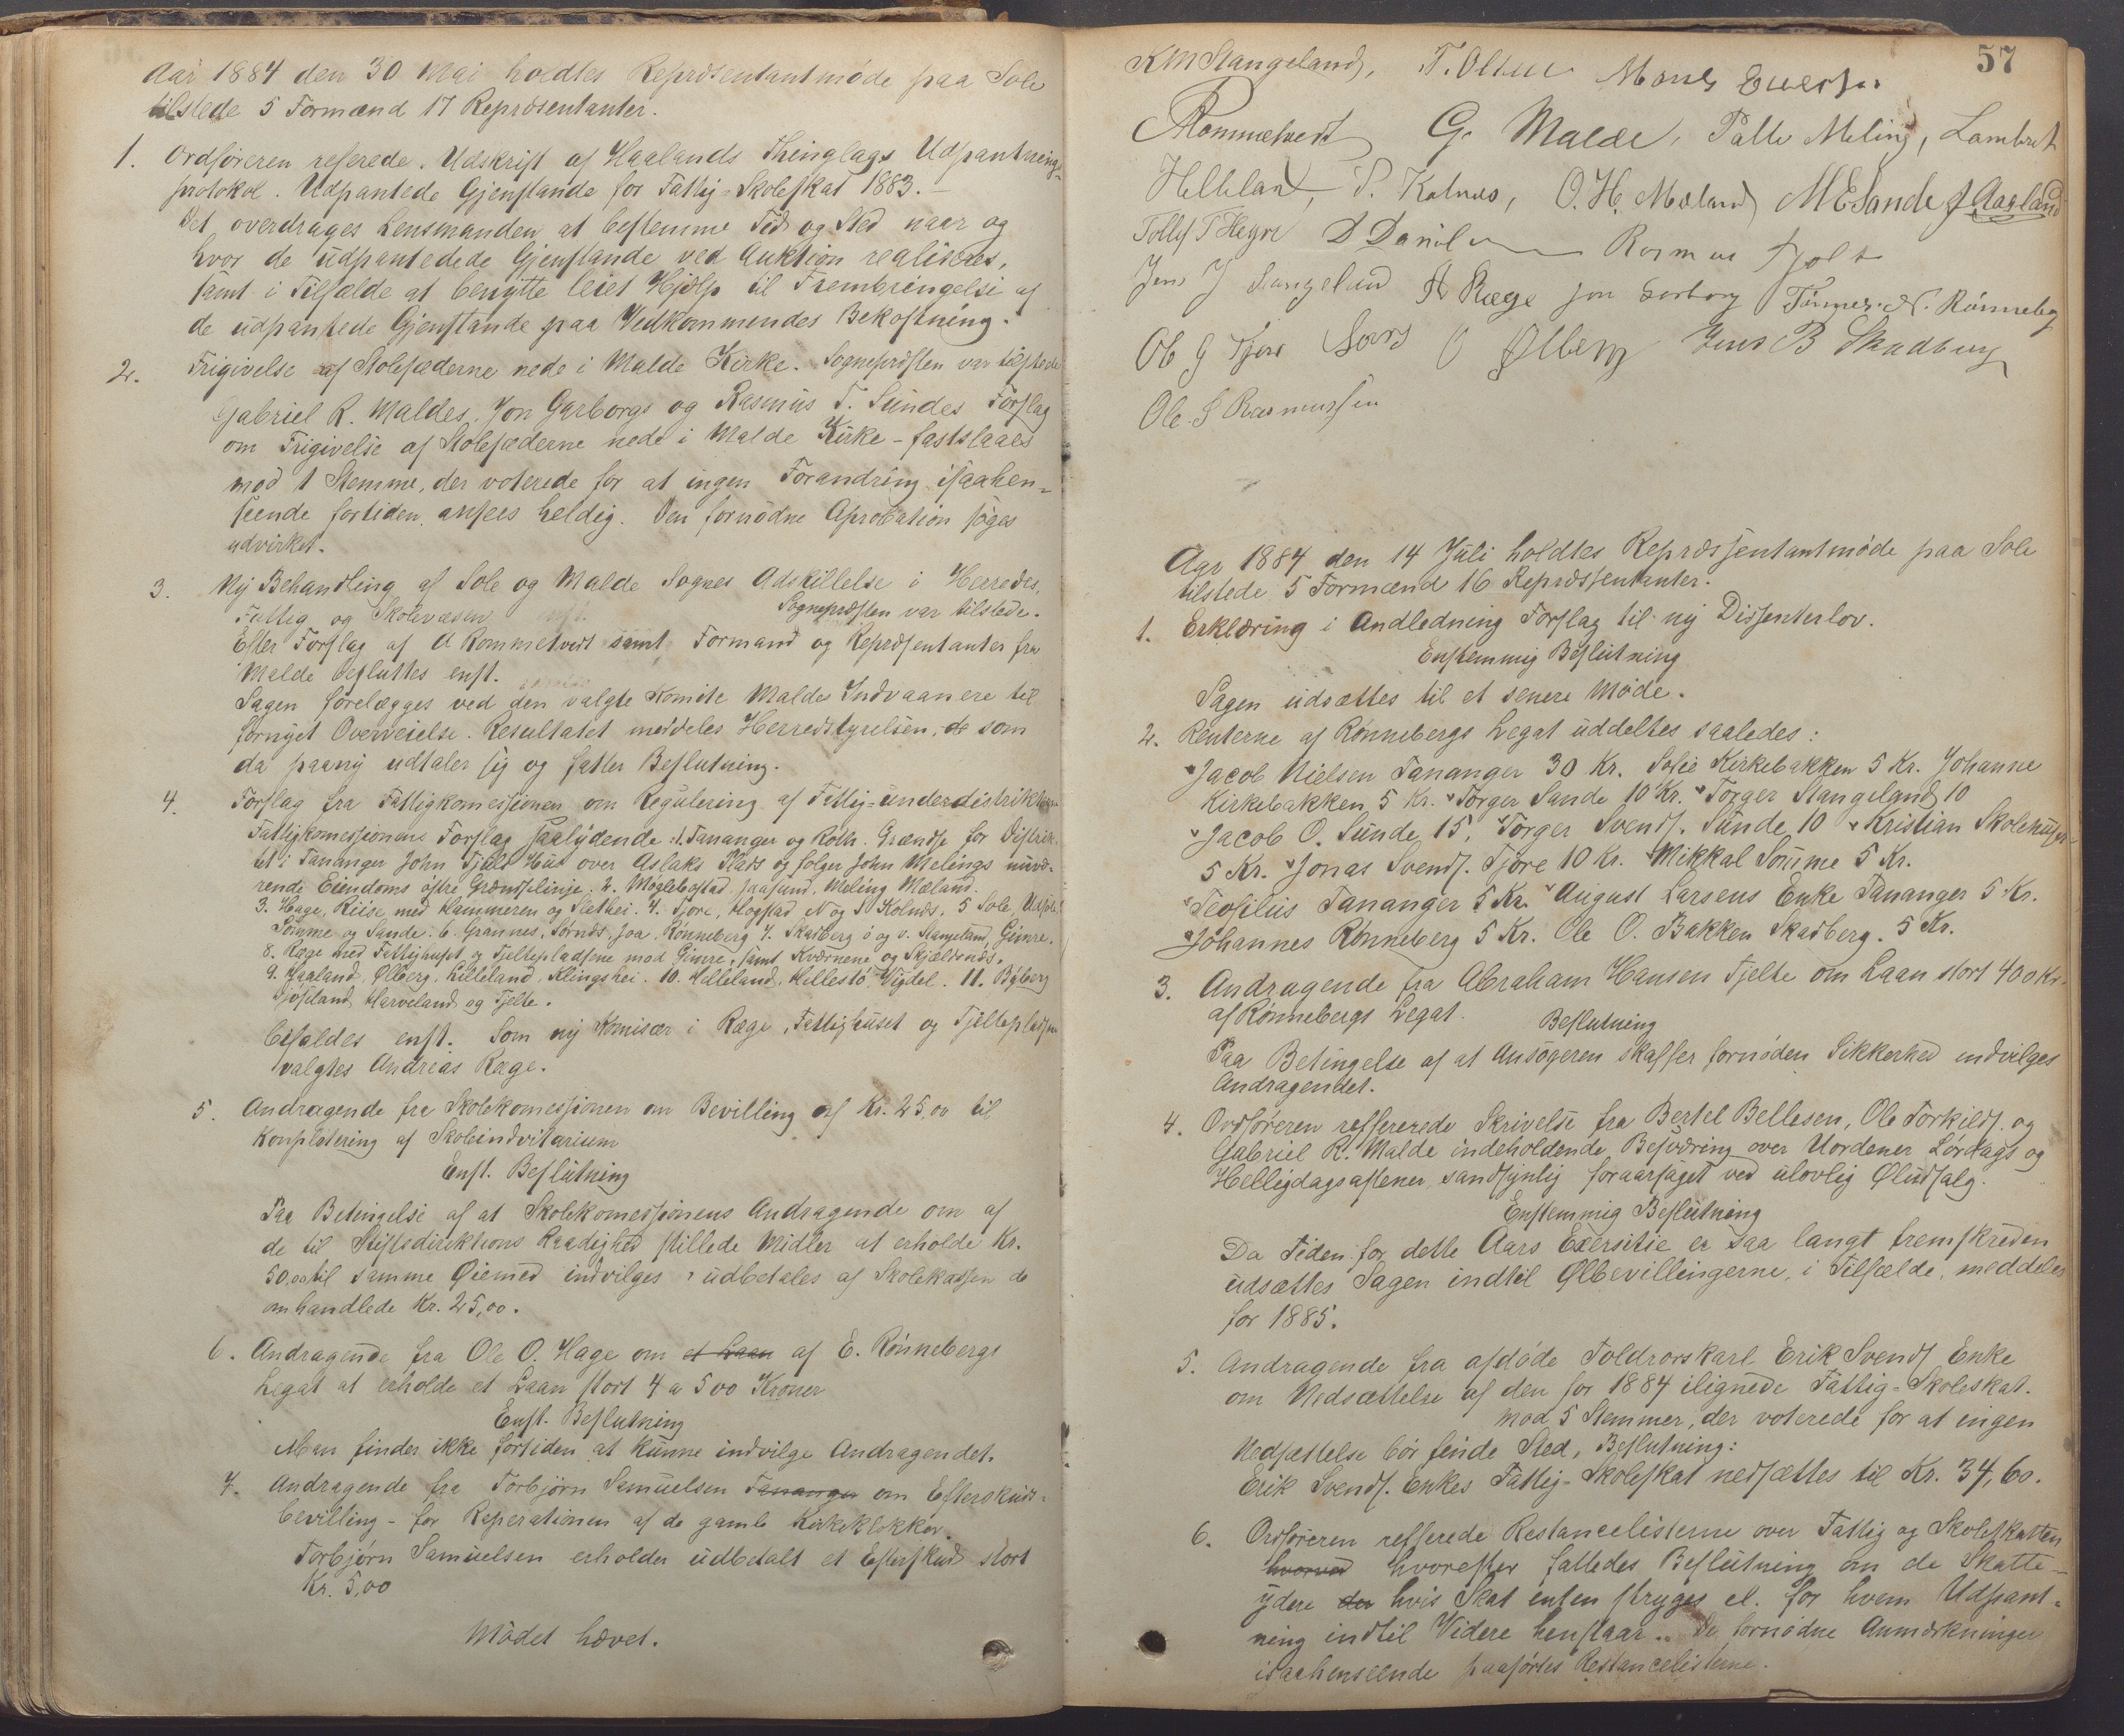 Aar 1884 den 30 Mai holdtes Repræsentantmøde paa Sole
tilstede 5 Formænd 17 Repræsentanter.
1. Ordføreren referede. Udskrift af Haalands Thinglags Udpantnings-
protokol. Udpantede Gjenstande for Fattig-Skoleskat 1883.
Det overdrages Lensmanden at bestemme Tid og Sted naar og
hvor de udpantedede Gjenstande ved Auktion realiseres,
samt i Tilfælde at benytte leiet Hjælp til Frembringelse af
de udpantede Gjenstande paa Vedkommendes Bekostning.
2. Frigivelse af Stolesæderne nede i Malde Kirke. Sognepræsten var tilstede
Gabriel R. Maldes, Jon Garborgs og Rasmus T. Sundes Forslag
om Frigivelse af Stolesæderne nede i Malde Kirke - fastslaaes
mod 1 Stemme, der voterede for at ingen Forandring isaahen-
seende fortiden ansees heldig. Den fornødne Aprobation søges
udvirket.
3. Ny Behandling af Sole og Malde Sognes Adskillelse i Herreds,
Fattig og Skolevæsen Sognepræsten var tilstede.
Efter Forslag af A Rommetvedt samt Formand og Repræsentanter fra
Malde besluttes enst.
Sagen forelægges ved den valgte Komite Maldes Indvaanere til
fornyet Overveielse. Resultatet meddeles Herredstyrelsen, som
da paany udtaler sig og fatter Beslutning.
4. Forslag fra Fattigkomessionen om Regulering af Fattig-underdistrikterne
Fattigkomessionens Forslag saalydende: 1. Tananger og Roth. Grændse for Distrik-
tet i Tananger John Tjelts Hus over Aslaks Plads og følger John Melings nuvæ-
rende Eiendoms østre Grændselinje. 2. Møglebostad Jaasund, Meling Mæland.
3. Hage, Riise med Hammeren og Slethei. 4. Tjore, Hogstad N og S Kolnæs. 5 Sole, Utsole,
Sømme og Sande. 6. Grannes, Sørnæs, Joa, Rønneberg 7. Skadberg ø og v. Stangeland, Gimre.
8. Ræge med Fattighuset og Tjeltepladsene mod Gimre, samt Kværnene og Skjældsnæs.
9. Haaland, Ølberg, Lilleland, Klingshei. 10. Helleland, Hellestø Vigdel. 11. Byberg
Sjøseland Harveland og Tjelte.
bifaldes enst. Som ny Komisær i Ræge, Fattighuset og Tjeltepladsen
valgtes Andreas Ræge.
5. Andragende fra Skolekomessionen om Bevilling af Kr. 25,00 til
Konpletering af Skoleindvitarium
Enst. Beslutning
Paa Betingelse af at Skolekomessionens Andragende om af
de til Stiftsdirektions Raadighed stillede Midler at erholde Kr.
50,00 til samme Øiemed indvilges udbetales af Skolekassen de
omhandlede Kr. 25,00.
6. Andragende fra Ole O. Hage om et Laan af E. Rønnebergs
Legat at erholde et Laan stort 4 a 500 Kroner
Enst. Beslutning
Man finder ikke fortiden at kunne indvilge Andragendet.
7. Andragende fra Torbjørn Samuelsen Tananger om Efterskuds-
bevilling - for Reperationen af de gamle Kirkeklokker.
Torbjørn Samuelsen erholder udbetalt et Efterskud stort
Kr. 5,00
Mødet hævet.
57
KM Stangeland, T. Olsen
Rommetvedt G. Malde, Palle Meling, Lambret
Helleland, P. Kolnæs, O. H. Mæland M E Sande J. Aarland
Tollef T Hegre D Danielsen Rasmus Tjelt
Jens J Stangeland A Ræge Jon Garborg Tørres N. Rønneberg
Ole G Tjore O Ølberg Jens B Skadberg
Ole S Rasmussen
Aar 1884 den 14 Juli holdtes Repræssentantmøde paa Sole
tilstede 5 Formænd 16 Repræssentanter.
1. Erklæring i Andledning Forslag til ny Dissenterlov.
Enstemmig Beslutning
Sagen udsættes til et senere Møde.
2. Renterne af Rønnebergs Legat uddeltes saaledes:
Jacob Nielsen Tananger 30 Kr. Sofie Kirkebakken 5 Kr. Johanne
Kirkebakken 5 Kr. Torger Sande 10 Kr. Torger Stangeland 10
Jacob O. Sunde 15, Torger Svends. Sunde 10 Kristian Skolehuset
5 Kr. Jonas Svends. Tjore 10 Kr. Mikkal Sømme 5 Kr.
Teofilus Tananger 5 Kr. August Larsens Enke Tananger 5 Kr.
Johannes Rønneberg 5 Kr. Ole O. Bakken Skadberg. 5 Kr.
3. Andragende fra Abraham Hansen Tjelte om Laan stort 400 Kr.
af Rønnebergs Legat.
Beslutning
Paa Betingelse af at Ansøgeren skaffer fornøden Sikkerhed indvilges
Andragendet.
4. Ordføreren reffererede Skrivelse fra Bertel Bellesen, Ole Torkilds. og
Gabriel R. Malde indeholdende Besværing over Uordener Lørdags og
Helligdagsaftener, sandsynlig foraarsaget ved ulovlig Øludsalg.
Enstemmig Beslutning
Da Tiden for dette Aars Exersitie er saa langt fremskreden
udsættes Sagen indtil Ølbevillingerne, i Tilfælde, meddeles
for 1885.
5. Andragende fra afdøde Toldrorskarl Erik Svends Enke
om Nedsættelse af den for 1884 ilignede Fattig-Skoleskat.
mod 5 Stemmer, der voterede for at ingen
Nedsættelse bør finde Sted, Beslutning:
Erik Svends. Enkes Fattig-Skoleskat nedsættes til Kr. 34,60.
6. Ordføreren refferede Restancelisterne over Fattig og Skoleskatten
hvorved hvorefter fattedes Beslutning om de Skatte-
ydere der hvis Skat enten stryges el. for hvem Udpant-
ning indtil Videre henstaar. De fornødne Anmærkninger
isaahenseende paaførtes Restancelisterne.